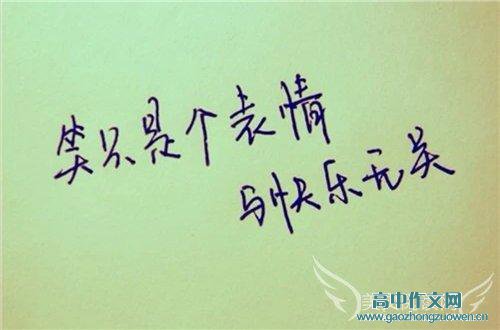 笑只是个表情
与快乐无关
高中作文网
www.gaozhongzuowen.cn